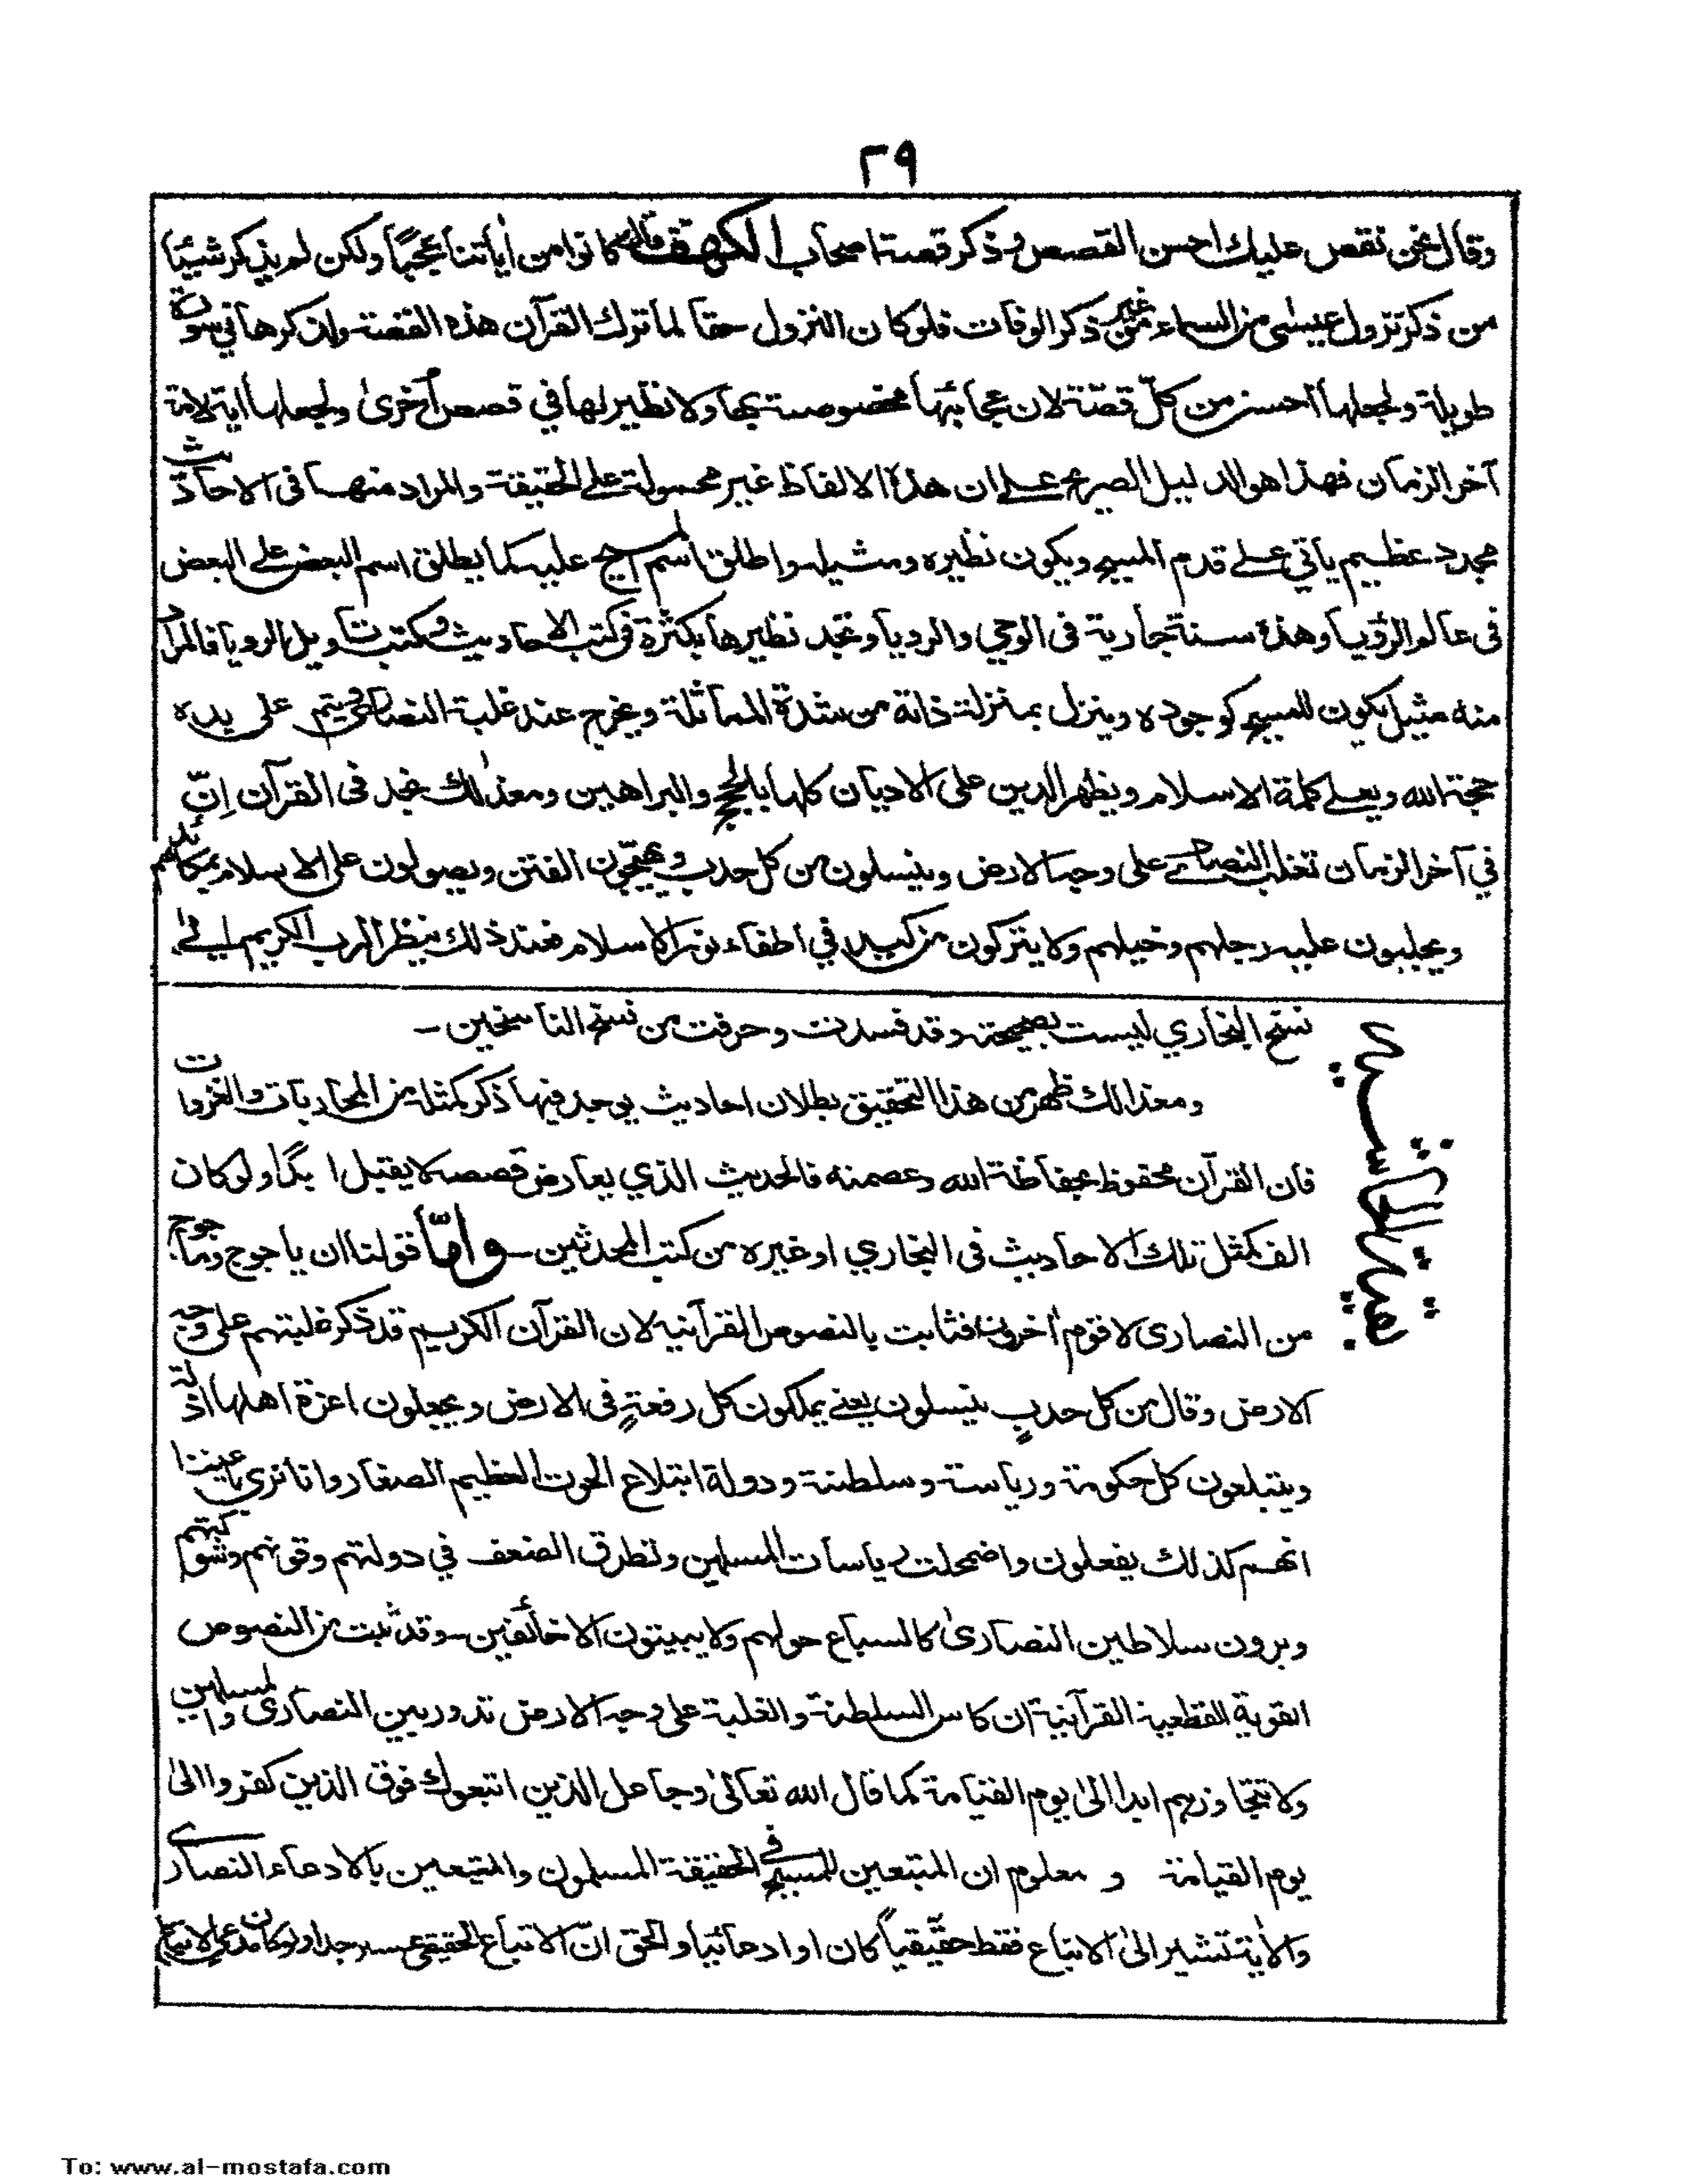 ٢٩
وقال نحن نقص عليك احسن القصص وذكر قصة اصحاب الكهف وقال كانوا من اٰياتنا عجبًا ولكن لم يذكر شيئًا
من ذكر نزول عيسٰى من السماء من غير ذكر الوفات فلو كان النزول حقا لما ترك القرآن هذه القصة ولذكرها في سورة
طويلة ولجعلها احسن من كل قصّة لان عجائبها مخصوصة بها ولا نظير لها في قصص اُخرىٰ ولجعلها اٰية لامة
آخر الزمان فهذا هو الدليل الصريح على ان هذه الالفاظ غير محمولة على الحقيقة والمراد منها فى الاحاديث
مجدد عظيم يأتي على قدم المسيح ويكون نظيره ومثيله واطلق اسم المسيح عليه كما يطلق اسم البعض على البعض
فى عالم الرؤيا وهذه سنة جارية فى الوحي والرويا وتجد نظيرها بكثرة فى كتب الاحاديث وكتب تاويل الرويا فالمراد
منه مثيل يكون للمسيح كوجوده وينزل بمنزلة ذاته من شدة المماثلة ويخرج عند غلبة النصارى ويتم على يده
حجة الله ويعلى كلمة الاسلام ويظهر الدين على الاديان كلها بالحجج والبراهين ومعذٰلك نجد فى القرآن اِنّ
في آخر الزمان تغلب النصارى على وجه الارض وينسلون من كل حدب ويهيّجون الفتن ويصولون على الاسلام بمكائدهم
ويجلبون عليه رجلهم وخيلهم ولا يتركون من كيد في اطفاء نور الاسلام فعند ذلك ينظر الرب الكريم الىٰ
بقية الحاشية
نسخ البخاري ليست بصحيحة وقد فسدت وحرفت من نسخ الناسخين ـ
ومعذالك ظهر من هذا التحقيق بطلان احاديث يوجد فيها ذكر كمثله من المحاربات والغزوات
فان القرآن محفوظ بحفاظة الله وعصمته فالحديث الذي يعارض قصصه لا يقبل ابدًا ولو كان
الف كمثل تلك الاحاديث فى البخاري او غيره من كتب المحدثين ـ واَمّا قولنا ان ياجوج وماجوج
من النصارى لا قوم اٰخرون فثابت بالنصوص القرآنيه لان القرآن الكريم قد ذكر غلبتهم على وجه
الارض وقال من كل حدبٍ ينسلون يعنے يملكون كل رفعةٍ فى الارض ويجعلون اعزة اهلها اذلة
ويبتلعون كل حكومة ورياسة وسلطنة ودولة ابتلاع الحوت العظيم الصغار وانا نرى باعيننا
انهم كذلك يفعلون واضمحلت رياسات المسلمين وتطرق الضعف في دولتهم وقوتهم وشوكتهم
ويرون سلاطين النصارىٰ كالسباع حولهم ولا يبيتون الا خائفين ـ وقد ثبت من النصوص
القوية القطعية القرآنية ان كاس السلطنة والغلبة على وجه الارض تدور بين النصارىٰ والمسلمين
ولا تتجاوزهم ابدا الىٰ يوم القيامة كما قال الله تعالىٰ وجاعل الذين اتبعوك فوق الذين كفروا الىٰ
يوم القيامة و معلوم ان المتبعين للمسيح فى الحقيقة المسلمون والمتبعين بالادعاء النصارى
والاٰية تشير الىٰ الاتباع فقط حقيقياً كان او ادعائيا والحق انّ الاتباع الحقيقى عسير جدا
To: www.al-mostafa.com